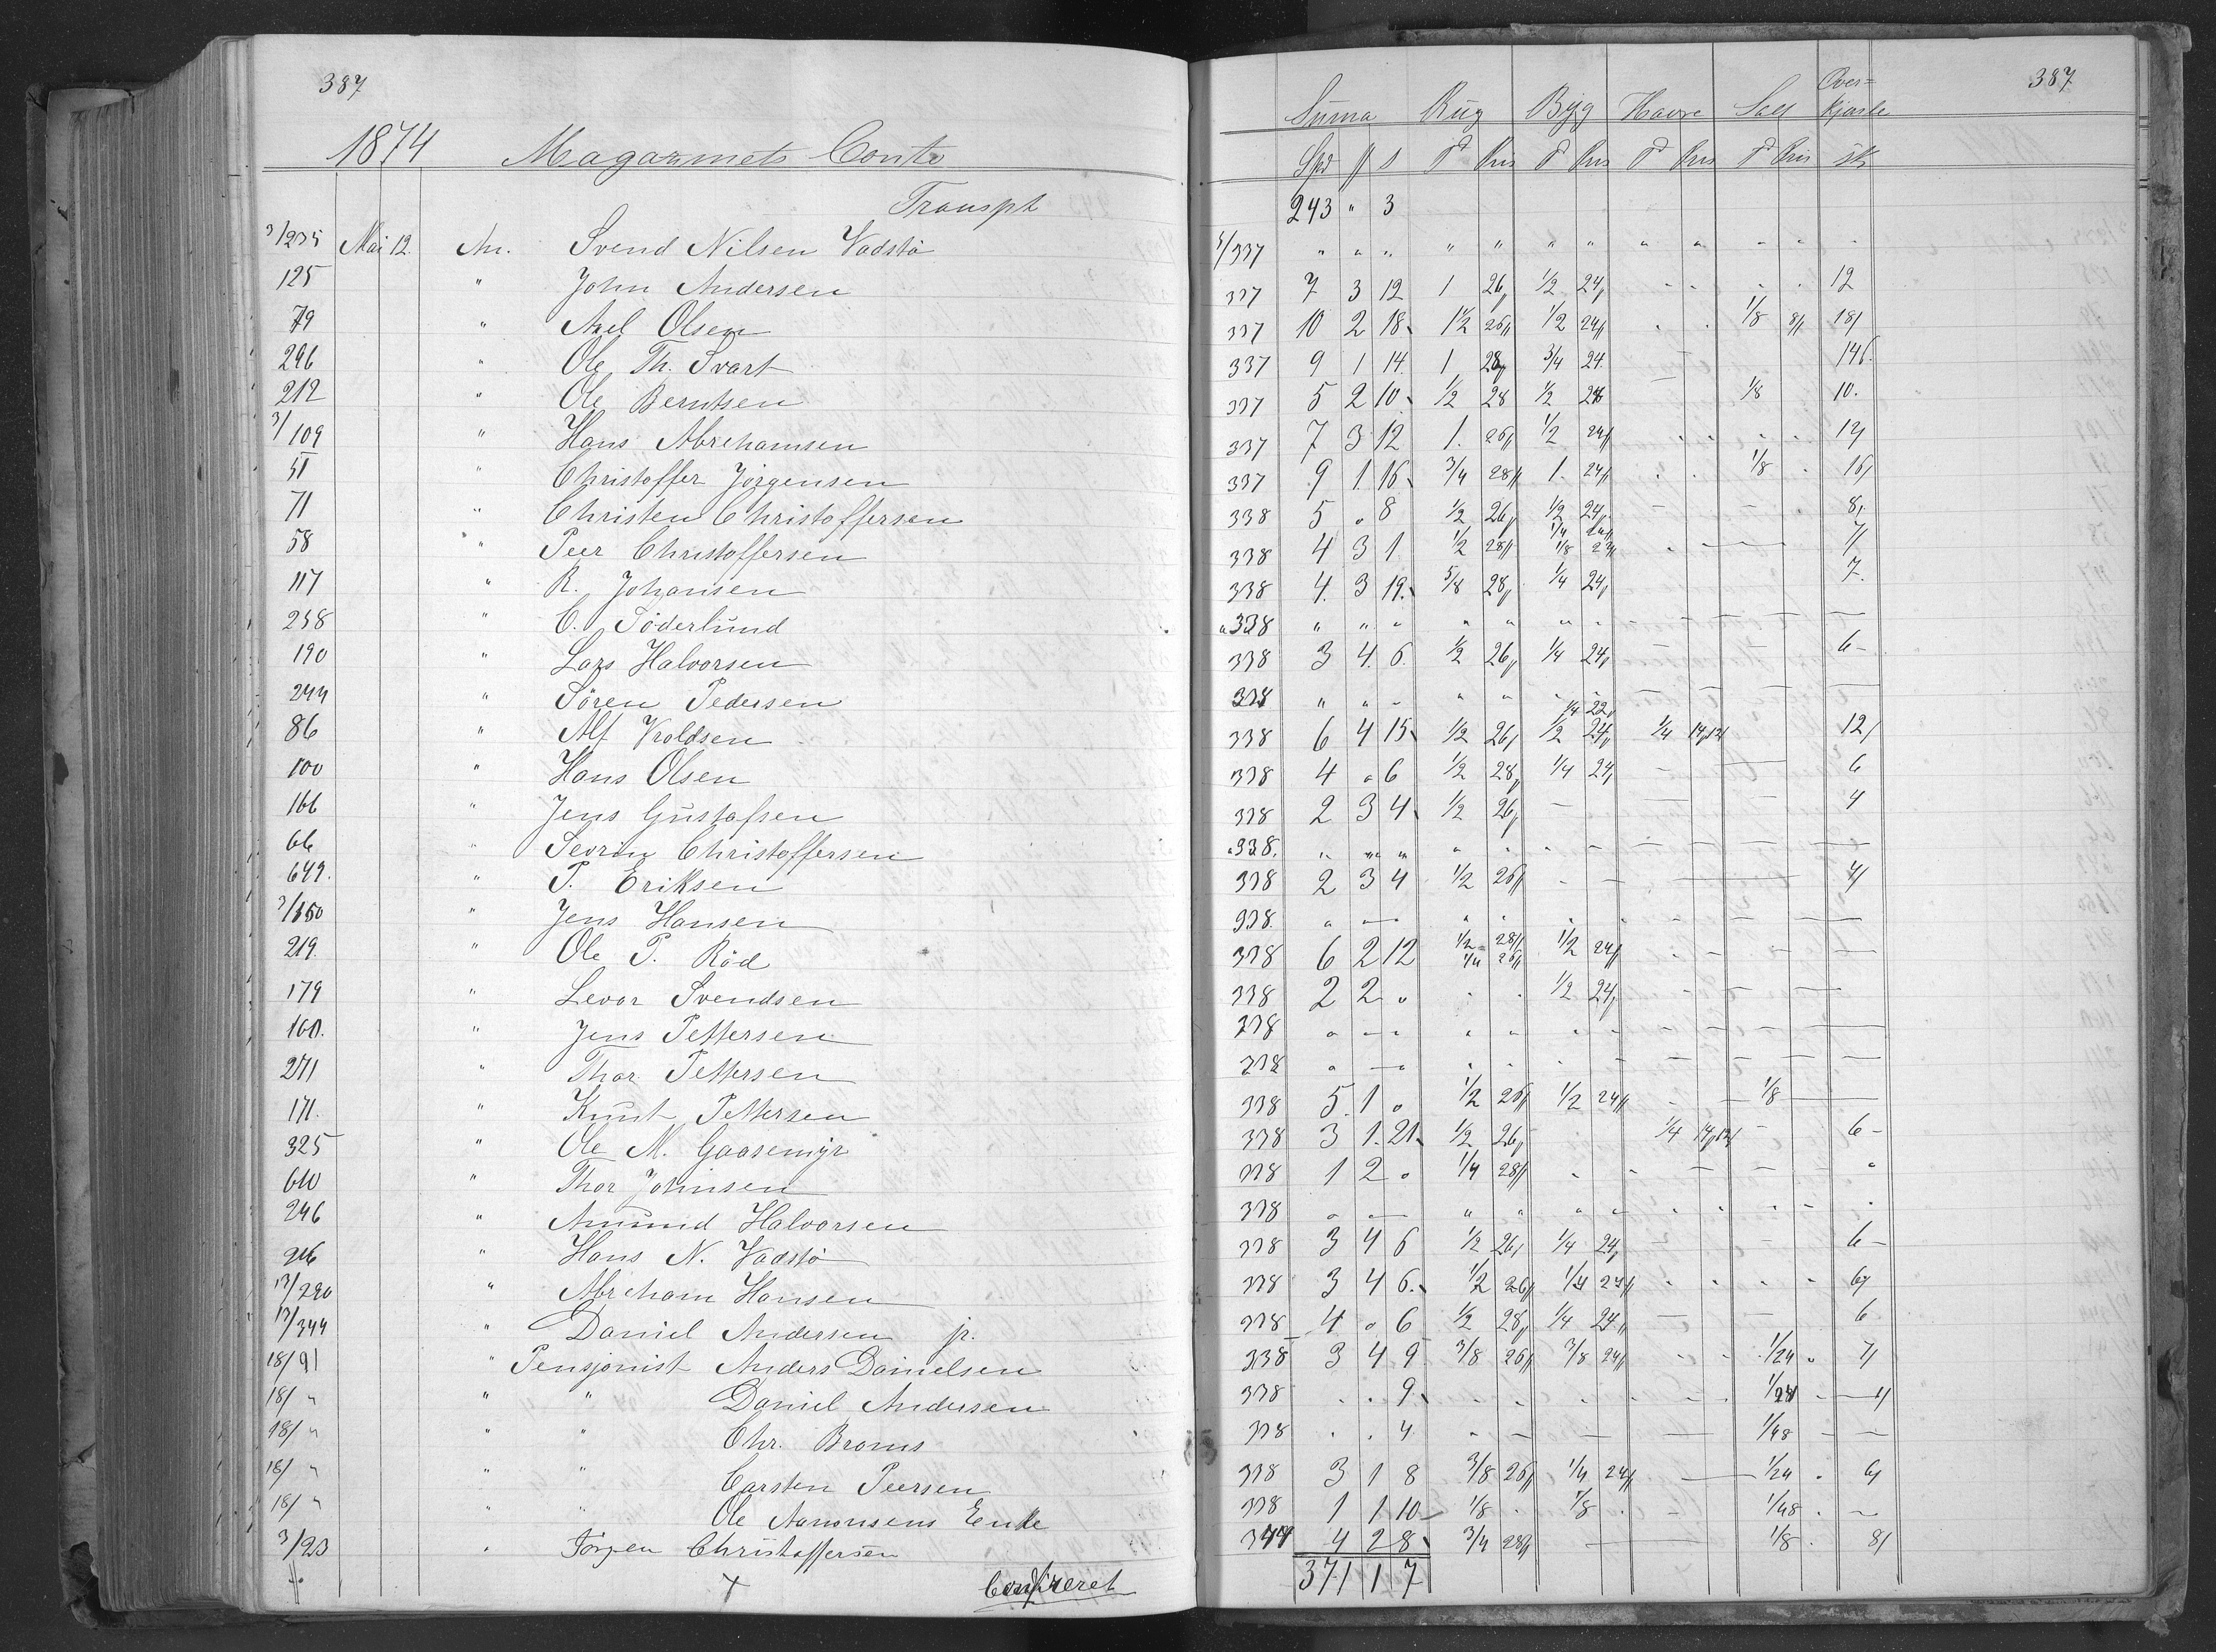 387
1874 Magazinets Conto
Transpt
3/235 Mai 12. An. Svend Nilsen Vadstö
125 " John Andersen
79 " Axel Olsen
296 " Ole Th. Svart
212 " Ole Berntsen
3/109 " Hans Abrehamsen
51 " Christoffer Jörgensen
71 " Christen Christoffersen
58 " Peer Christoffersen
117 " R. Johansen
258 " C. Söderlund
190 " Lars Halvorsen
244 " Sören Pedersen
86 " Alf Vroldsen
100 " Hans Olsen
166 " Jens Gustafsen
66 " Sevrin Christoffersen
649. " P. Eriksen
3/150 " Jens Hansen
219. " Ole P. Röd
179 " Levor Svendsen
160. " Jens Pettersen
271 " Thor Pettersen
171. " Knut Pettersen
325 " Ole M. Gaasemyr
610 " Thor Johnsen
246 " Amund Halvorsen
" Hans N. Vadstö
17/290 " Abreham Hansen
17/344 " Daniel Andersen jr.
18/91 " Pensjonist Anders Danielsen
18/ " " " Daniel Andersen
18/ " " " Chr. Broms
18/ " " " Carsten Peersen
18/ " " " Ole Aanonsens Enke
3/23 " Jörgen Christoffersen
Confereret
387
Suma Rug Byg Havre Salt Over=kjörsle
Spd # s T Pris T Pris T Pris T Pris sk
243 " 3
3/337 " " " " " " " " " - - -
337 7 3 12 1 26 1/2 24 - - - - 12
337 10 2 18 1 1/2 26 1/2 24 - - 1/8 8 18
337 9 1 14 1 28 3/4 24 - 14
337 5 2 10 1/2 28 1/2 28 - 1/8 10.
337 7 3 12 1. 26 1/2 24 - - - - 12
337 9 1 16 3/4 28 1. 24 - - 1/8 - 16
338 5 " 8 1/2 26 1/2 24 - - - 8
338 4 3 1 1/2 28 1/4 24 1/8 23 - - 7
338 4. 3 19. 5/8 28 1/4 24 7.
338 " " " " " " " - - - - -
338 3 4. 6. 1/2 26 1/4 24 6-
338 " " - " " - - - - - - -
338 6 4 15 1/2 26 1/4 22 1/2 24 1/4 14 12
338 4 " 6 1/2 28 1/4 24 - - 6
338 2 3 4 1/2 26 - - - 4
338. " " " " " - - - - - - -
338 2 3 4 1/2 26 - - - - 4
338. " - " " " - - - - - -
338 6 2 12 1/2 28 1/4 26 1/2 24 - - - - -
338 2 2 " - - 1/2 24 - - - -
338 " - " " " " - - - - -
338 " - " - - - - - - - - -
338 5. 1 " 1/2 26 1/2 24 - - 1/8 -
338 3 1. 21 1/2 26 1/4 14 - 6-
338 1 2 " 1/4 28 - - - - - "
338 " - " " " " - - - - -
338 3 4 6 1/2 26 1/4 24 - - 6-
338 3 4 6. 1/2 26 1/4 24 - - - - 6
338 4 " 6 1/2 28 1/4 24 - - 6
338 3 4 9 3/8 26 3/8 24 - - 1/24 " 7
338 - - 9 - - - - - - 1/24 -
338 - - 4 - - - - 1/48 - -
338 3 1 8 3/8 26 1/4 24 - 1/24 - 6
338 1 1 10 1/8 - 1/8 - - 1/48 - -
344 4 2 8 3/4 28 - 1/8 - 8
371 1 7